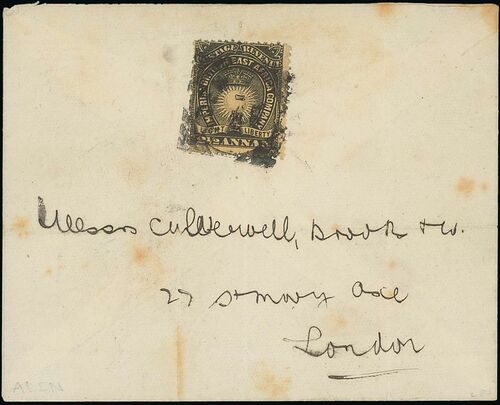 POSTAGE REVENUE
IMPERIAL BRITISH EAST AFRICA COMPANY
LIGHT & LIBERTY
2½ ANNAS
Messrs Culverwell, Brook & Co.
27 St Mary Axe
London